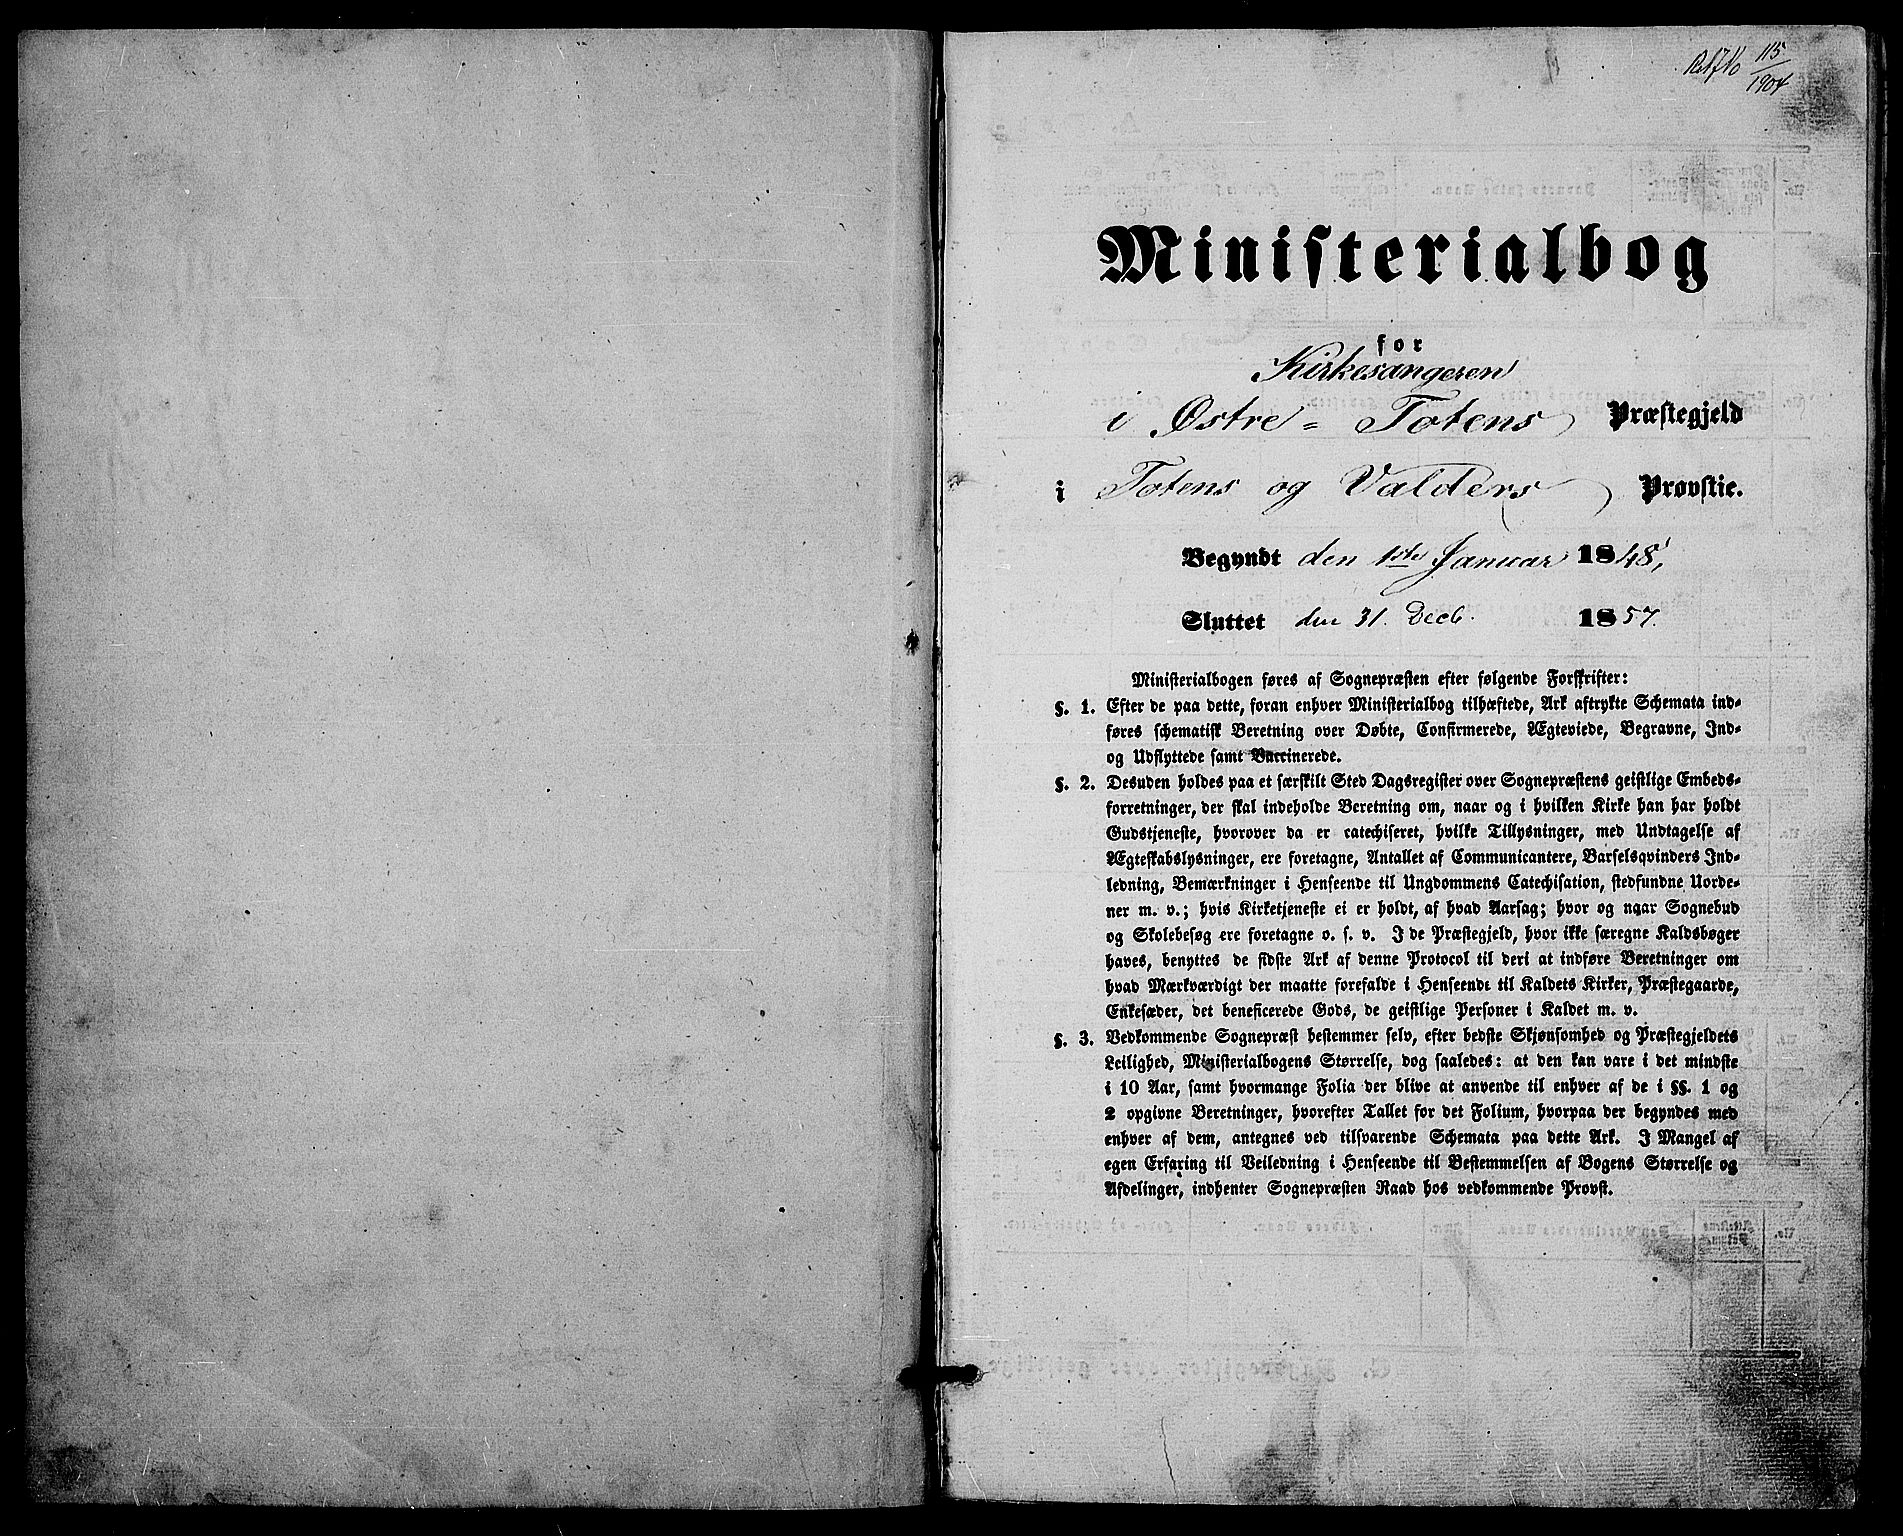 115
1904
Ministerialbog
for
Kirkesangeren
i Østre-Totens Præstegjeld
i Totens og Valders Provstie.
Begyndt den 1ste Januar 1848,
Sluttet den 31. Decb. 1857.
Ministerialbogen føres af Sognepræsten efter følgende Forskrifter:
§. 1. Efter de paa dette, foran enhver Ministerialbog tilhæftede, Ark aftrykte Schemata ind-
føres schematisk Beretning over Døbte, Confirmerede, Ægteviede, Begravne, Ind-
og Udflyttede samt Vaccinerede.
§. 2. Desuden holdes paa et særskilt Sted Dagsregister over Sognepræstens geistlige Embeds-
forretninger, der skal indeholde Beretning om, naar og i hvilken Kirke han har holdt
Gudstjeneste, hvorover da er catechiseret, hvilke Tillysninger, med Undtagelse af
Ægteskabslysninger, ere foretagne, Antallet af Communicantere, Barselsqvinders Ind-
ledning, Bemærkninger i Henseende til Ungdommens Catechisation, stedfundne Uorde-
ner m. v.; hvis Kirketjeneste ei er holdt, af hvad Aarsag; hvor og naar Sognebud
og Skolebesøg ere foretagne o. s. v. I de Præstegjeld, hvor ikke særegne Kaldsbøger
haves, benyttes de sidste Ark af denne Protocol til deri at indføre Beretninger om
hvad Mærkværdigt der maatte forefalde i Henseende til Kaldets Kirker, Præstegaarde,
Enkesæder, det beneficerede Gods, de geistlige Personer i Kaldet m. v.
§. 3. Vedkommende Sognepræst bestemmer selv, efter bedste Skjønsomhed og Præstegjeldets
Leilighed, Ministerialbogens Størrelse, dog saaledes: at den kan vare i det mindste
i 10 Aar, samt hvormange Folia der blive at anvende til enhver af de i §§. 1 og
2 opgivne Beretninger, hvorefter Tallet for det Folium, hvorpaa der begyndes med
enhver af dem, antegnes ved tilsvarende Schemata paa dette Ark. I Mangel af
egen Erfaring til Veiledning i Henseende til Bestemmelsen af Bogens Størrelse og
Afdelinger, indhenter Sognepræsten Raad hos vedkommende Provst.